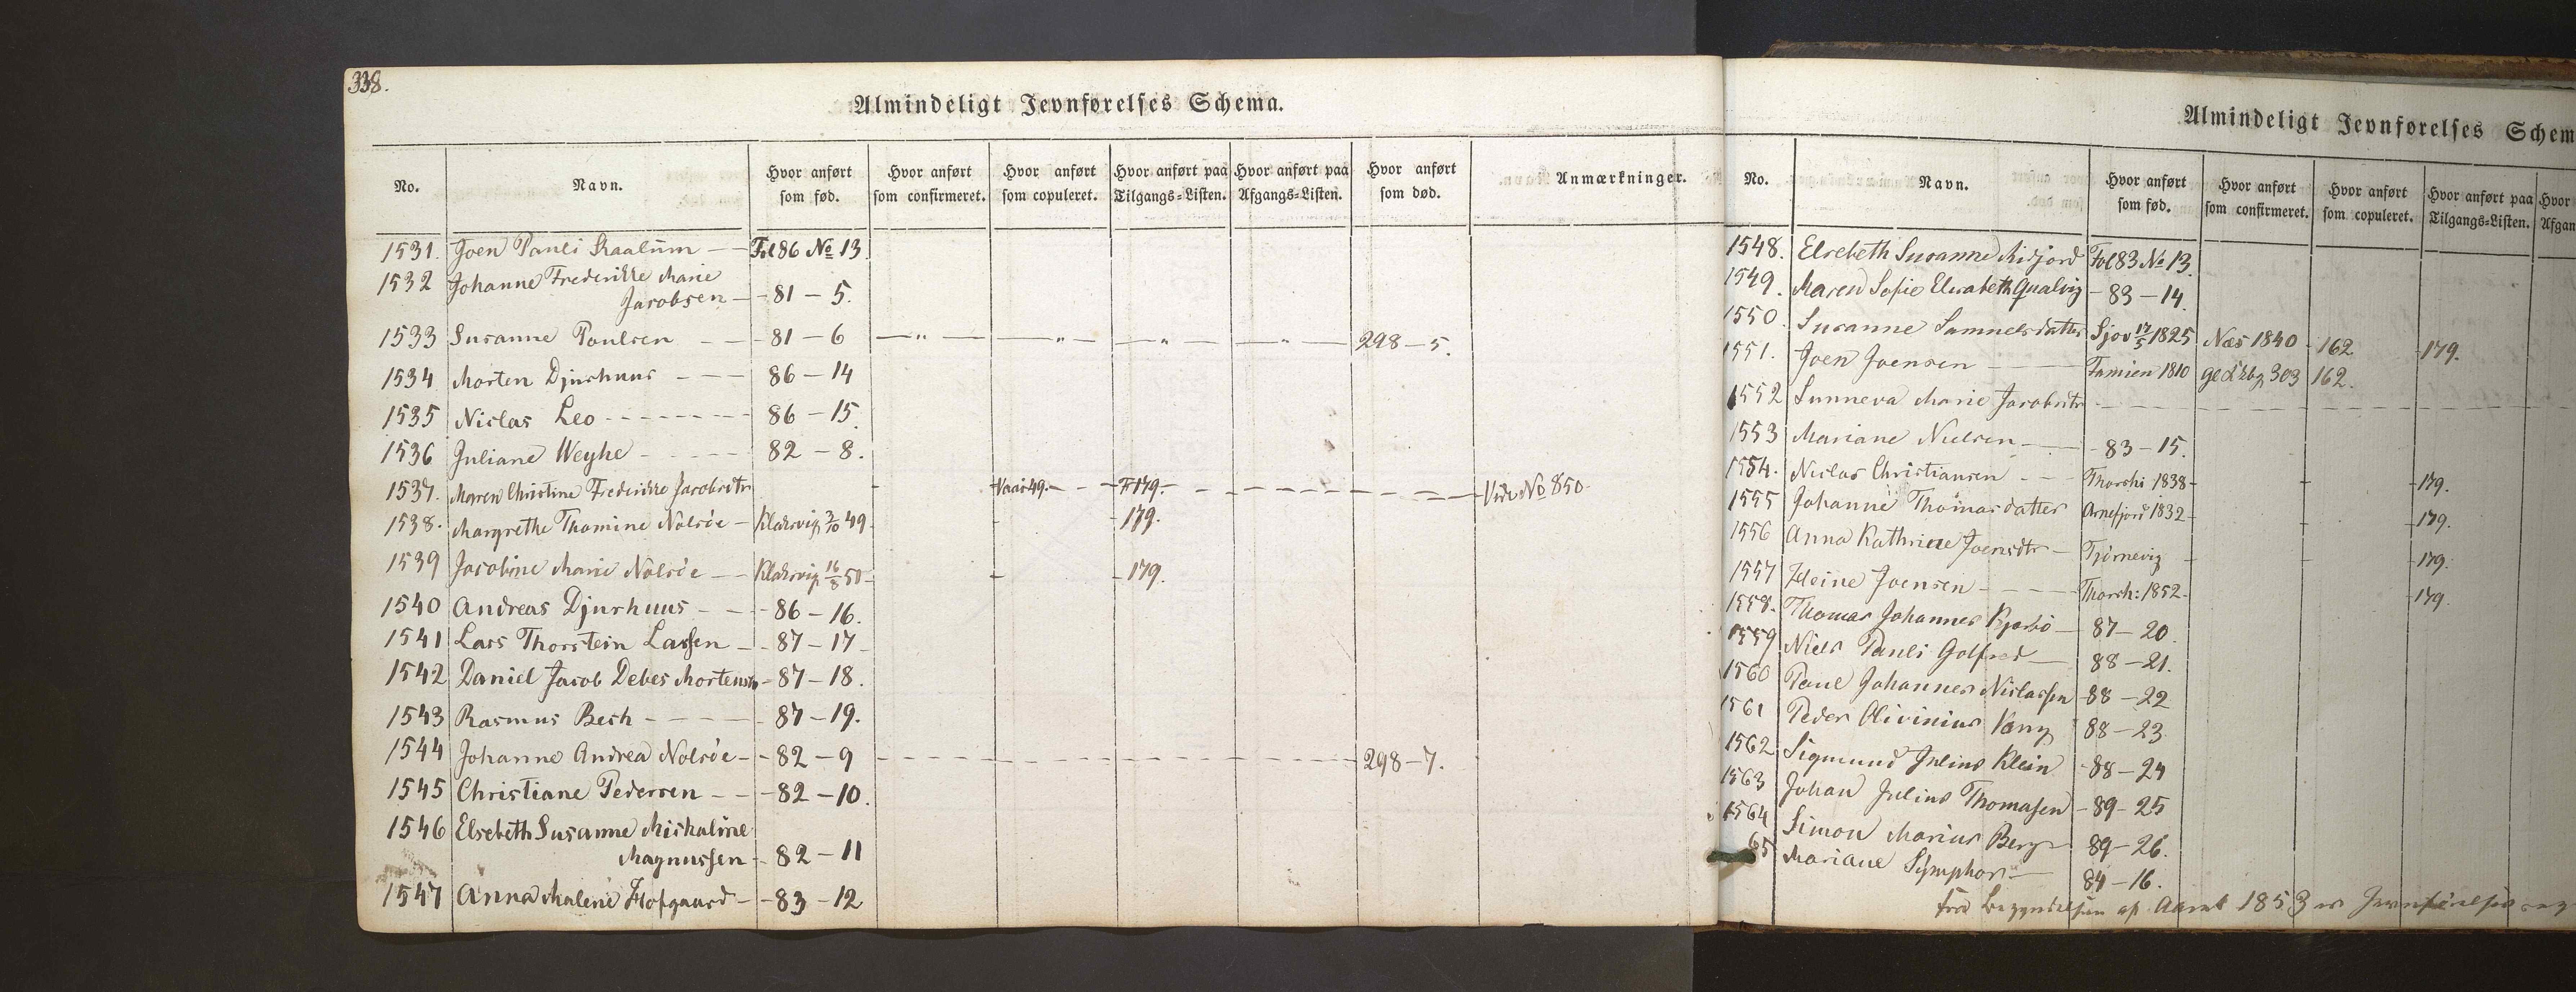 338.
Almindeligt Jevnførelses Schema.
No. Navn. Hvor anført som fød. Hvor anført som confirmeret. Hvor anført som copuleret. Hvor anført paa Tilgangs-Listen. Hvor anført paa Afgangs-Listen. Hvor anført som død. Anmærkninger.
1531. Joen Pauli Skaalum — Fol 86 No 13.
1532 Johanne Frederikke Marie
Jacobsen — - 81 — 5.
1533 Susanne Poulsen — - 81 — 6 — " — — " — — " — — " — 298 — 5.
1534 Morten Djurhuus — 86 — 14
1535 Niclas Leo - - - - 86 — 15.
1536 Juliane Weyhe - - - - 82 — 8.
1537. Maren Christine Frederikke Jacobsdtr - Vaai 49. — - 179. - - - - Vide No 850
1538. Margrethe Thomine Nolsöe — Klaksvig 3/10 49 - - 179.
1539 Jacobine Marie Nolsöe — Klaksvig 16/8 50 - - 179.
1540 Andreas Djurhuus — - 86 — 16.
1541 Lars Thorstein Lassen — - 87 — 17
1542 Daniel Jacob Debes Mortensen - 87 — 18.
1543 Rasmus Bech - - - - 87 — 19.
1544 Johanne Andrea Nolsöe - - 82 — 9 - - - - 298 — 7.
1545 Christiane Pedersen — - 82 — 10.
1546 Elsebeth Susanne Michaline
Magnussen - 82 — 11
1547 Anna Malene Hofgaard — - 83 — 12
Almindeligt Jevnførelses Schem
No. Navn. Hvor anført som fød. Hvor anført som confirmeret. Hvor anført som copuleret. Hvor anført paa Tilgangs-Listen. Hvor Afgan
1548. Elsebeth Susanne Midjord Fol 83 No 13.
1549. Maren Sofie Elisabeth Qualvig - 83 — 14.
1550. Susanne Samuelsdatter Sjov 17/5 1825 Næs 1840 - 162 - 179.
1551. Joen Joensen — Famien 1810 303 162.
1552 Sunneva Marie Jacobsdtr - - - -
1553 Mariane Nielsen — - 83 — 15.
1554. Niclas Christiansen - - Thorsh: 1838 - - - 179.
1555 Johanne Thomasdatter Arnefjord 1832 - - - 179.
1556 Anna Kathrine Joensdtr — Tjørnevig - - - 179.
1557 Heine Joensen - - - Thorsh: 1852 - - 179.
1558. Thomas Johannes Kjærbö — 87 — 20.
1559 Niels Pauli Golfred — 88 — 21.
1560 Poul Johannes Niclassen 88 — 22
1561 Peder Olivinius Vang 88 — 23
1562 Sigmund Julius Klein 88 — 24
1563 Johan Julius Thomasen - 89 — 25
1564 Simon Marius Berg — 89 — 26.
65 Mariane Symphor — 84 — 16.
Fra Begyndelsen af Aaret 1853 er